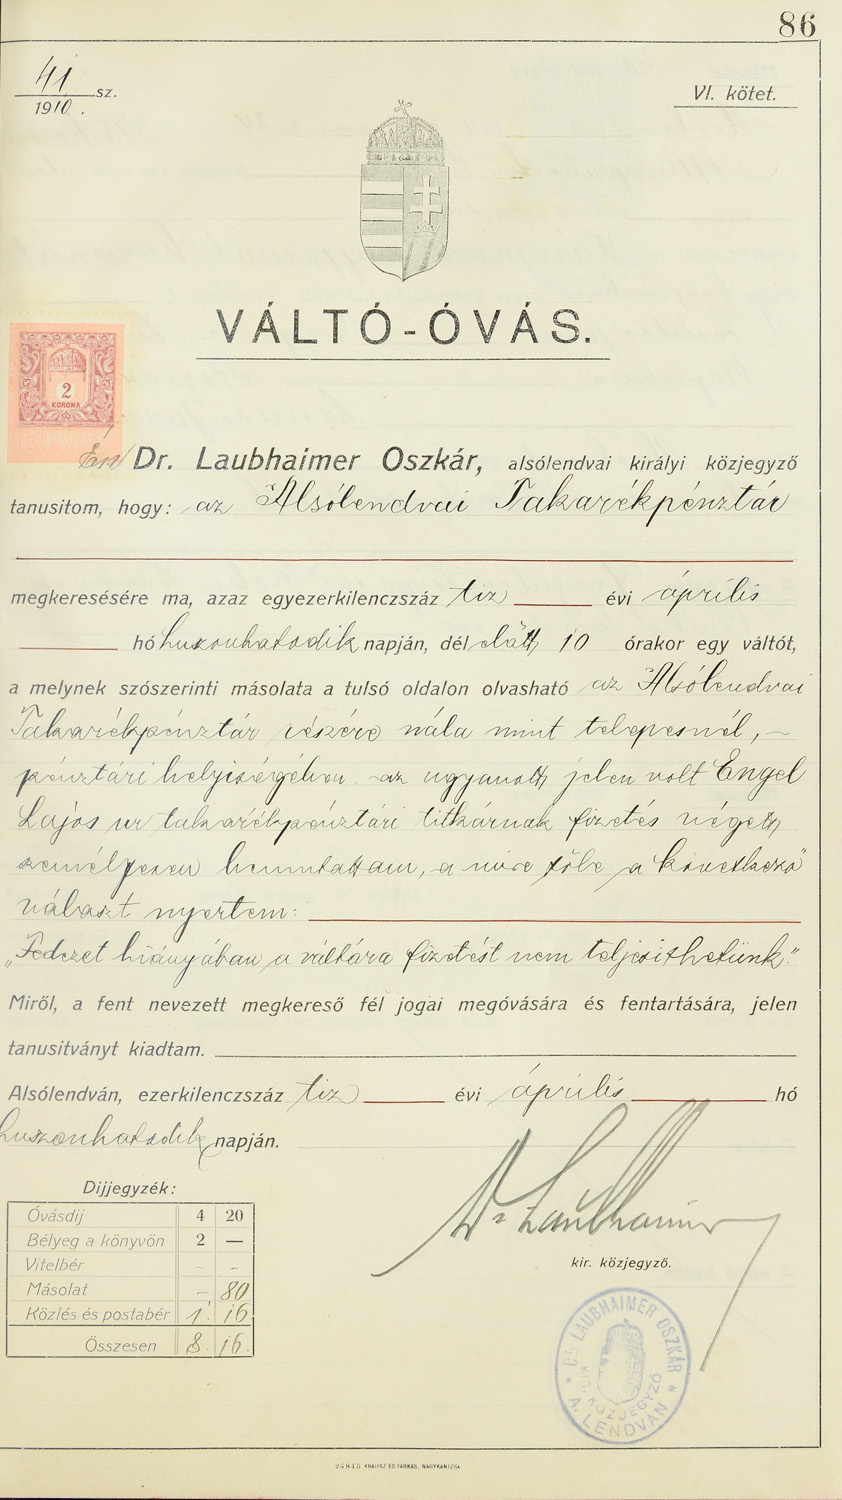 86
41
sz.
1910.
VI. kötet.
VÁLTÓ-ÓVÁS.
2
KORONA
Én Dr. Laubhaimer Oszkár, alsólendvai királyi közjegyző
tanusitom, hogy: az Alsólendvai Takarékpénztár
megkeresésére ma, azaz egyezerkilenczszáz tiz évi április
hó huszonhatodik napján, dél előtt 10 órakor egy váltót,
a melynek szószerinti másolata a tulsó oldalon olvasható az Alsólendvai
Takarékpénztár részére nála mint telepesnél, –
pénztári helyiségében az ugyanott jelen volt Engel
Lajos ur takarékpénztári titkárnak fizetés végett
személyesen bemutattam, a mire tőle a következő
választ nyertem:
„Fedezet hiányában a váltóra fizetést nem teljesithetünk."
Miről, a fent nevezett megkereső fél jogai megóvására és fentartására, jelen
tanusitványt kiadtam.
Alsólendván, ezerkilenczszáz tiz évi április hó
huszonhatodik napján.
Dijjegyzék:
Óvásdij 4 20
Bélyeg a könyvön 2 —
Vitelbér - -
Másolat — 80
Közlés és postabér 1. 16
Összesen 8. 16.
Dr Laubhaimer
kir. közjegyző.
DR. LAUBHAIMER OSZKÁR
KIR. KÖZJEGYZŐ
A. LENDVÁN
24845 KRAUSZ ÉS FARKAS, NAGYKANIZSA